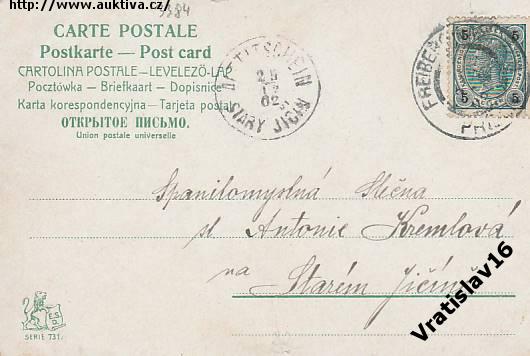 http://www.auktiva.cz/
3384
CARTE POSTALE
Postkarte — Post card
CARTOLINA POSTALE – LEVELEZŐ-LAP
Pocztówka – Briefkaart – Dopisnice
Karta korespondencyjna – Tarjeta postal
ОТКРЫТОЕ ПИСЬМО.
Union postale universelle
TITSCHEIN
STARY JIČIN
FREIBERG
5 5
5 5
Spanilomyslná Slečna
sl. Antonie Kremlová
na
Starém Jičíně
SERIE 731.
Vratislav16